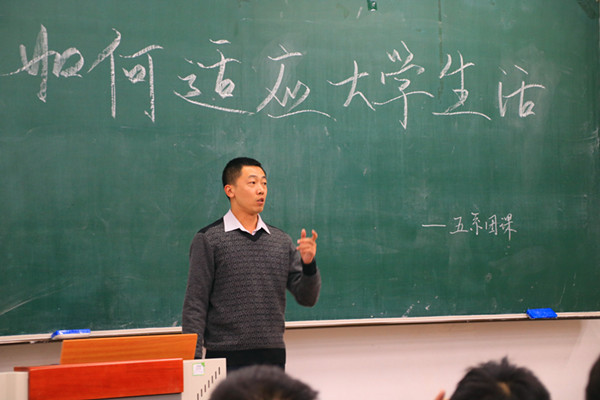 如何适应大学生活
—五系团课